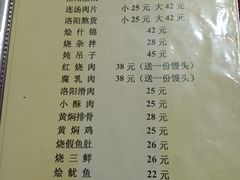 连汤肉片 小25元 大42元
洛阳熬货 小25元 大42元
烩什锦 42元
烧杂拌 28元
炖吊子 45元
红烧肉 38元（送一份馒头）
腐乳肉 38元（送一份馒头）
洛阳滑肉 25元
小酥肉 25元
黄焖排骨 28元
黄焖鸡 25元
烧假鱼肚 26元
烧三鲜 26元
烩鱿鱼 22元